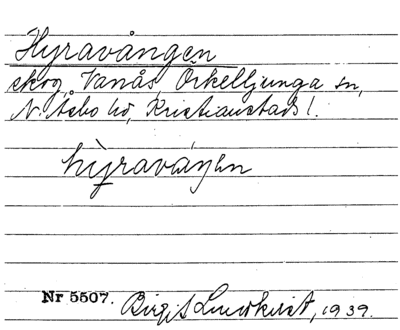 Hyravången
skog, Vanås, Örkelljunga sn,
N. Åsbo hd, Kristianstads l.
hỳraváŋen
Nr 5507. Birgit Lundkvist, 1939.